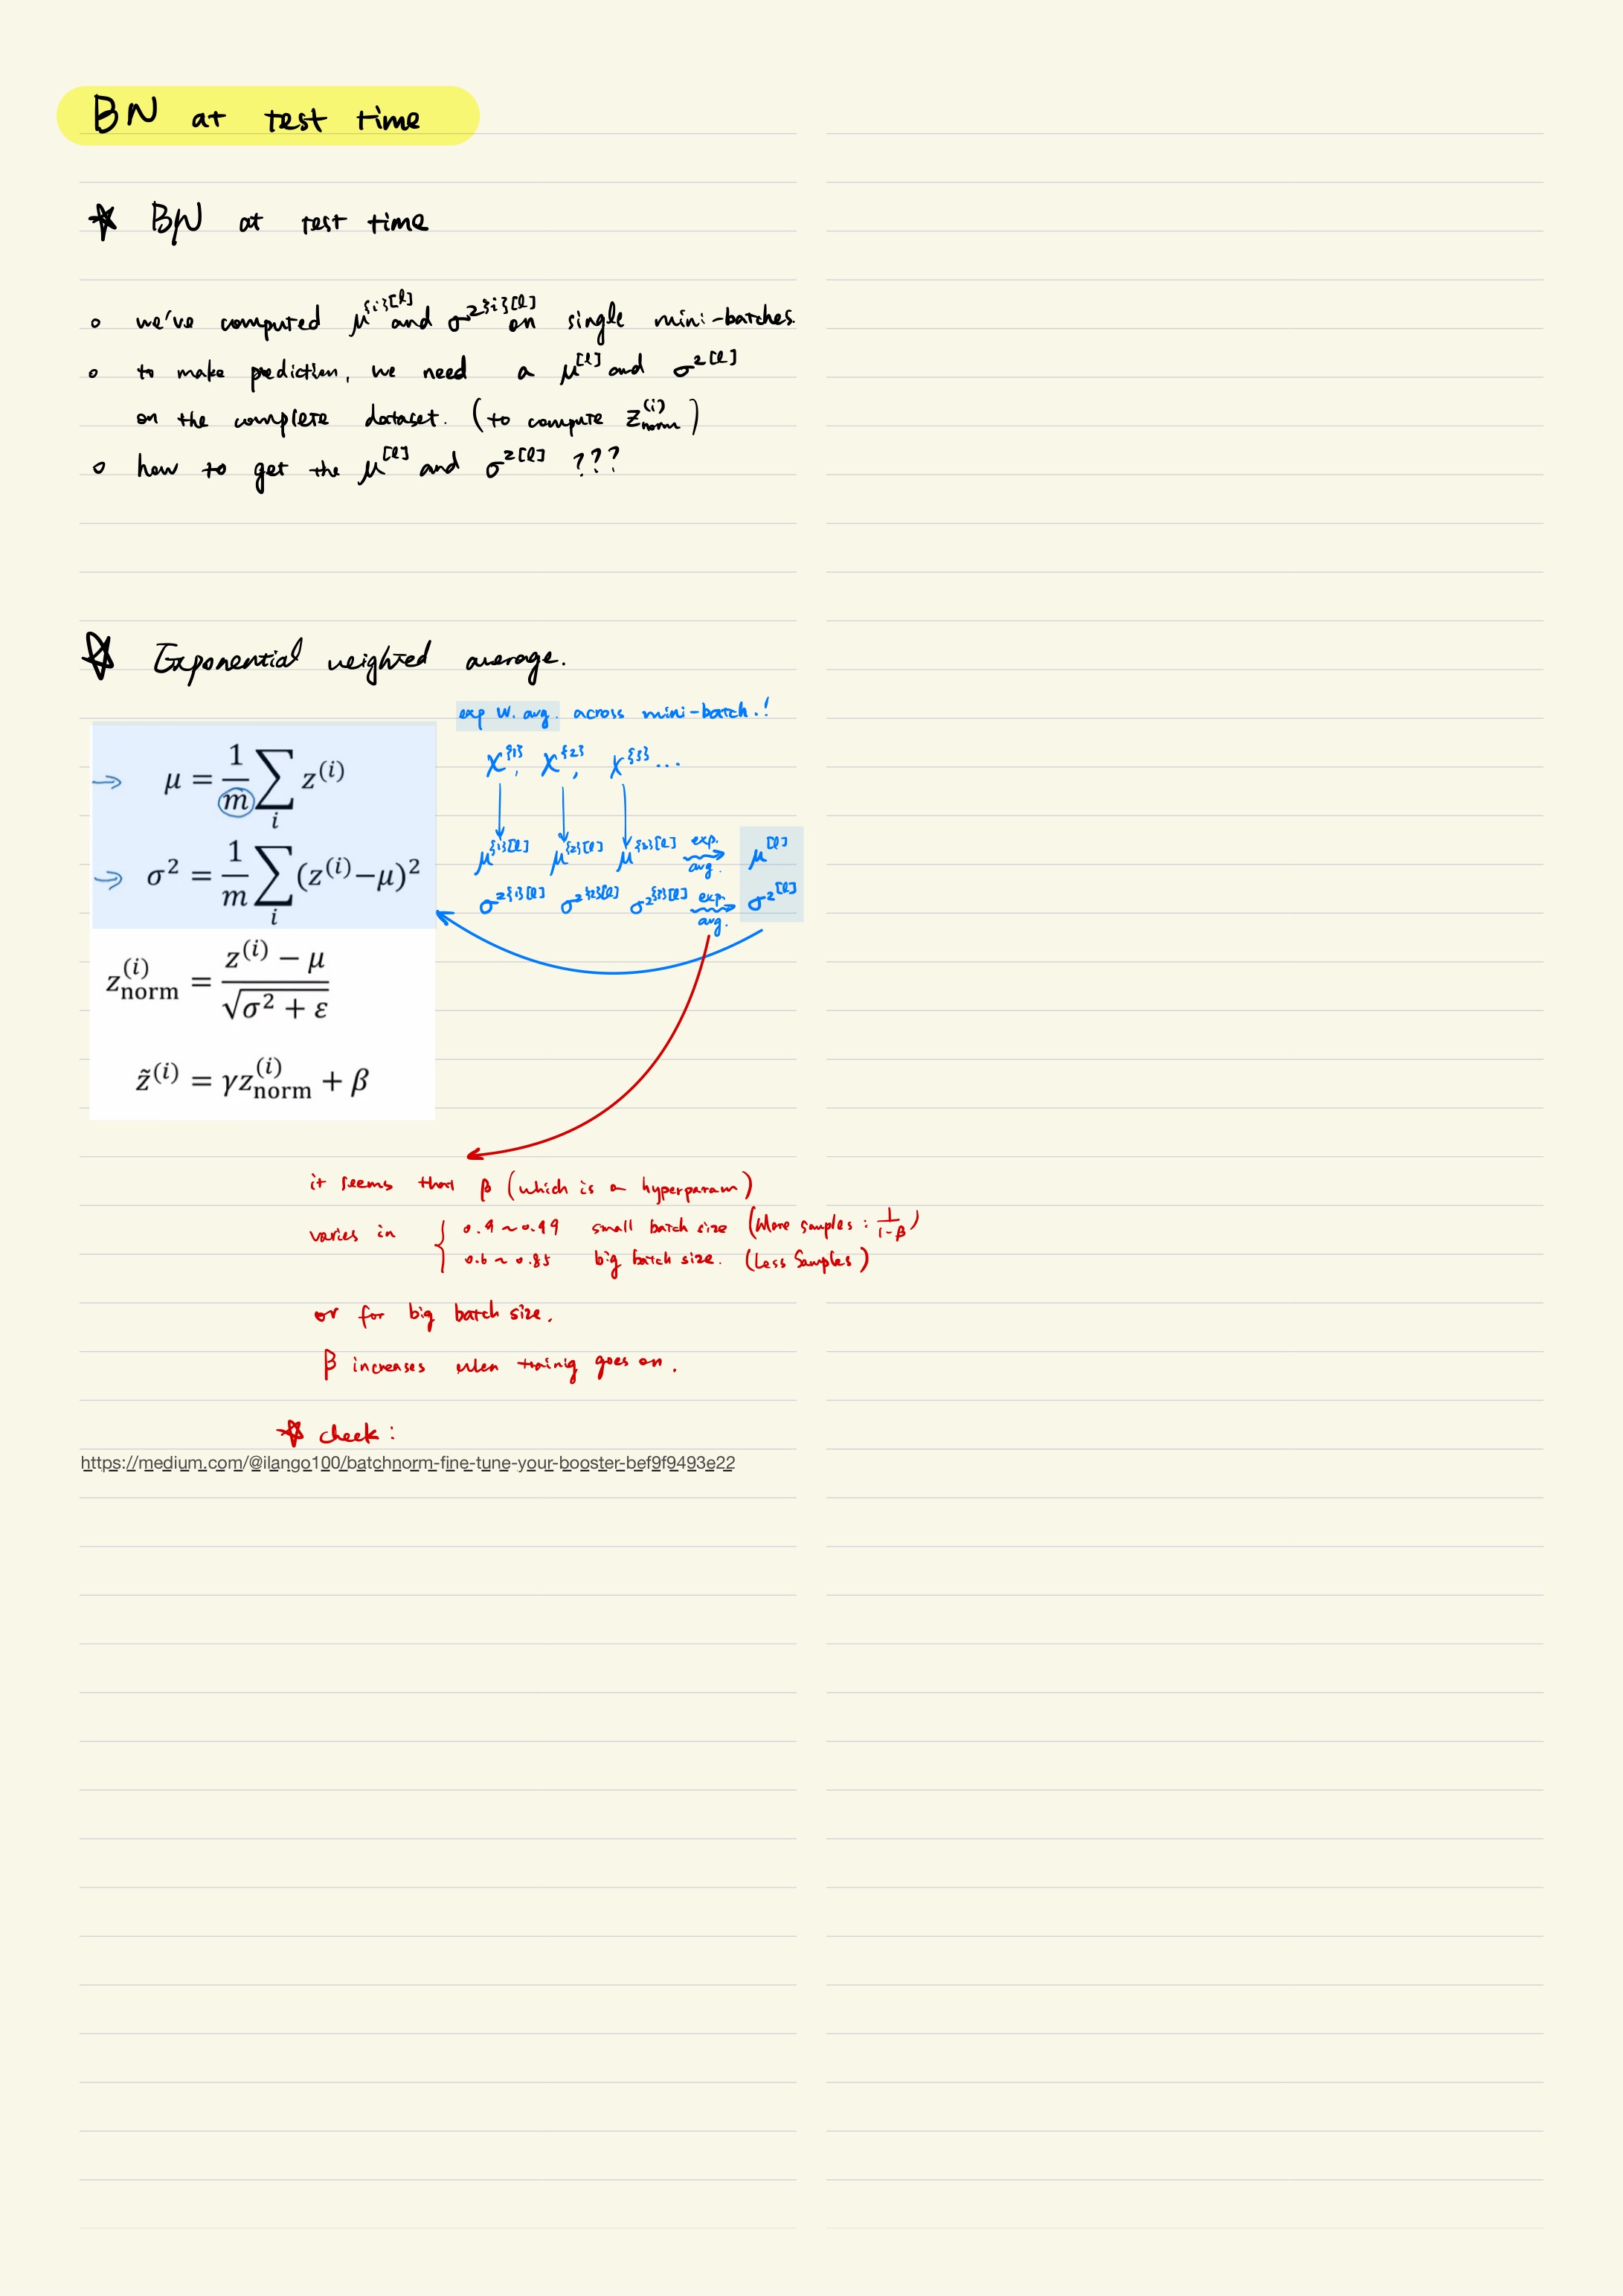 BN at test time
☆ BN at test time
o we've computed μ^{i}[l] and σ²^{i}[l] on single mini-batches.
o to make prediction, we need a μ^[l] and σ²^[l]
on the complete dataset. (to compute z_norm^(i))
o how to get the μ^[l] and σ²^[l] ???
☆ Exponential weighted average.
exp w. avg. across mini-batch.!
X^{1}, X^{2}, X^{3} ...
μ^{1}[l] μ^{2}[l] μ^{3}[l] exp. avg. → μ^[l]
σ²^{1}[l] σ²^{2}[l] σ²^{3}[l] exp. avg. → σ²^[l]
→ μ = 1/m ∑_i z^(i)
→ σ² = 1/m ∑_i (z^(i)−μ)²
z_norm^(i) = (z^(i) − μ) / √(σ² + ε)
z̃^(i) = γz_norm^(i) + β
it seems that β (which is a hyperparam)
varies in { 0.9 ~ 0.99 small batch size (More samples : 1/(1-β))
0.6 ~ 0.85 big batch size. (Less Samples)
or for big batch size.
β increases when trainig goes on.
☆ check :
https://medium.com/@ilango100/batchnorm-fine-tune-your-booster-bef9f9493e22